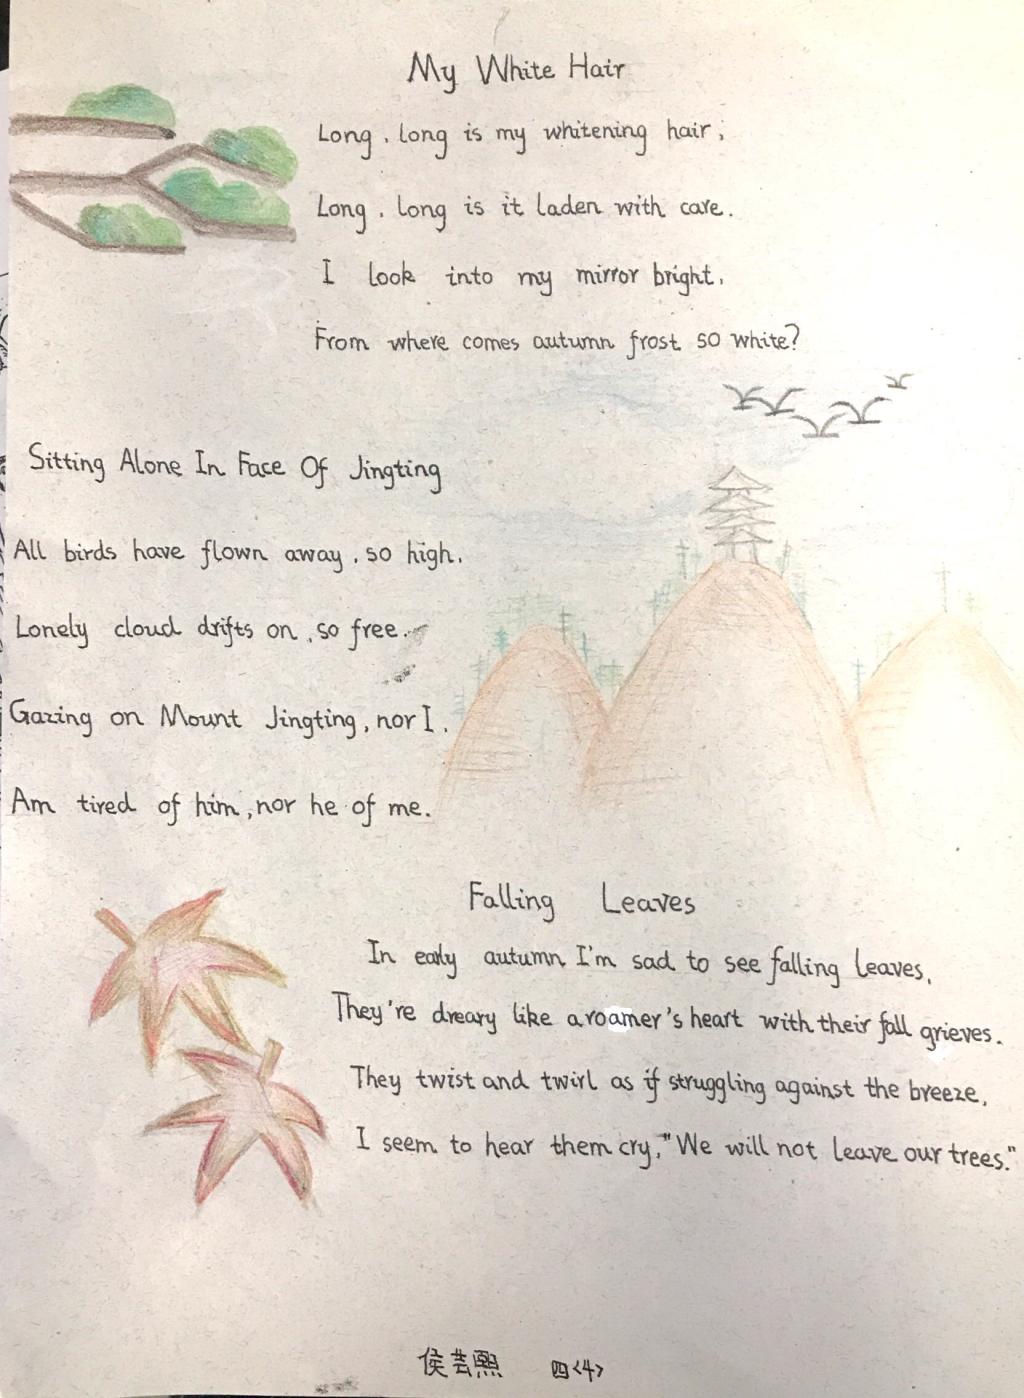 My White Hair
Long, long is my whitening hair;
Long, long is it laden with care.
I look into my mirror bright,
From where comes autumn frost so white?
Sitting Alone In Face Of Jingting
All birds have flown away, so high.
Lonely cloud drifts on, so free.
Gazing on Mount Jingting, nor I.
Am tired of him, nor he of me.
Falling Leaves
In early autumn I'm sad to see falling leaves,
They're dreary like a roamer's heart with their fall grieves.
They twist and twirl as if struggling against the breeze,
I seem to hear them cry, "We will not leave our trees."
侯芸熙 四<4>